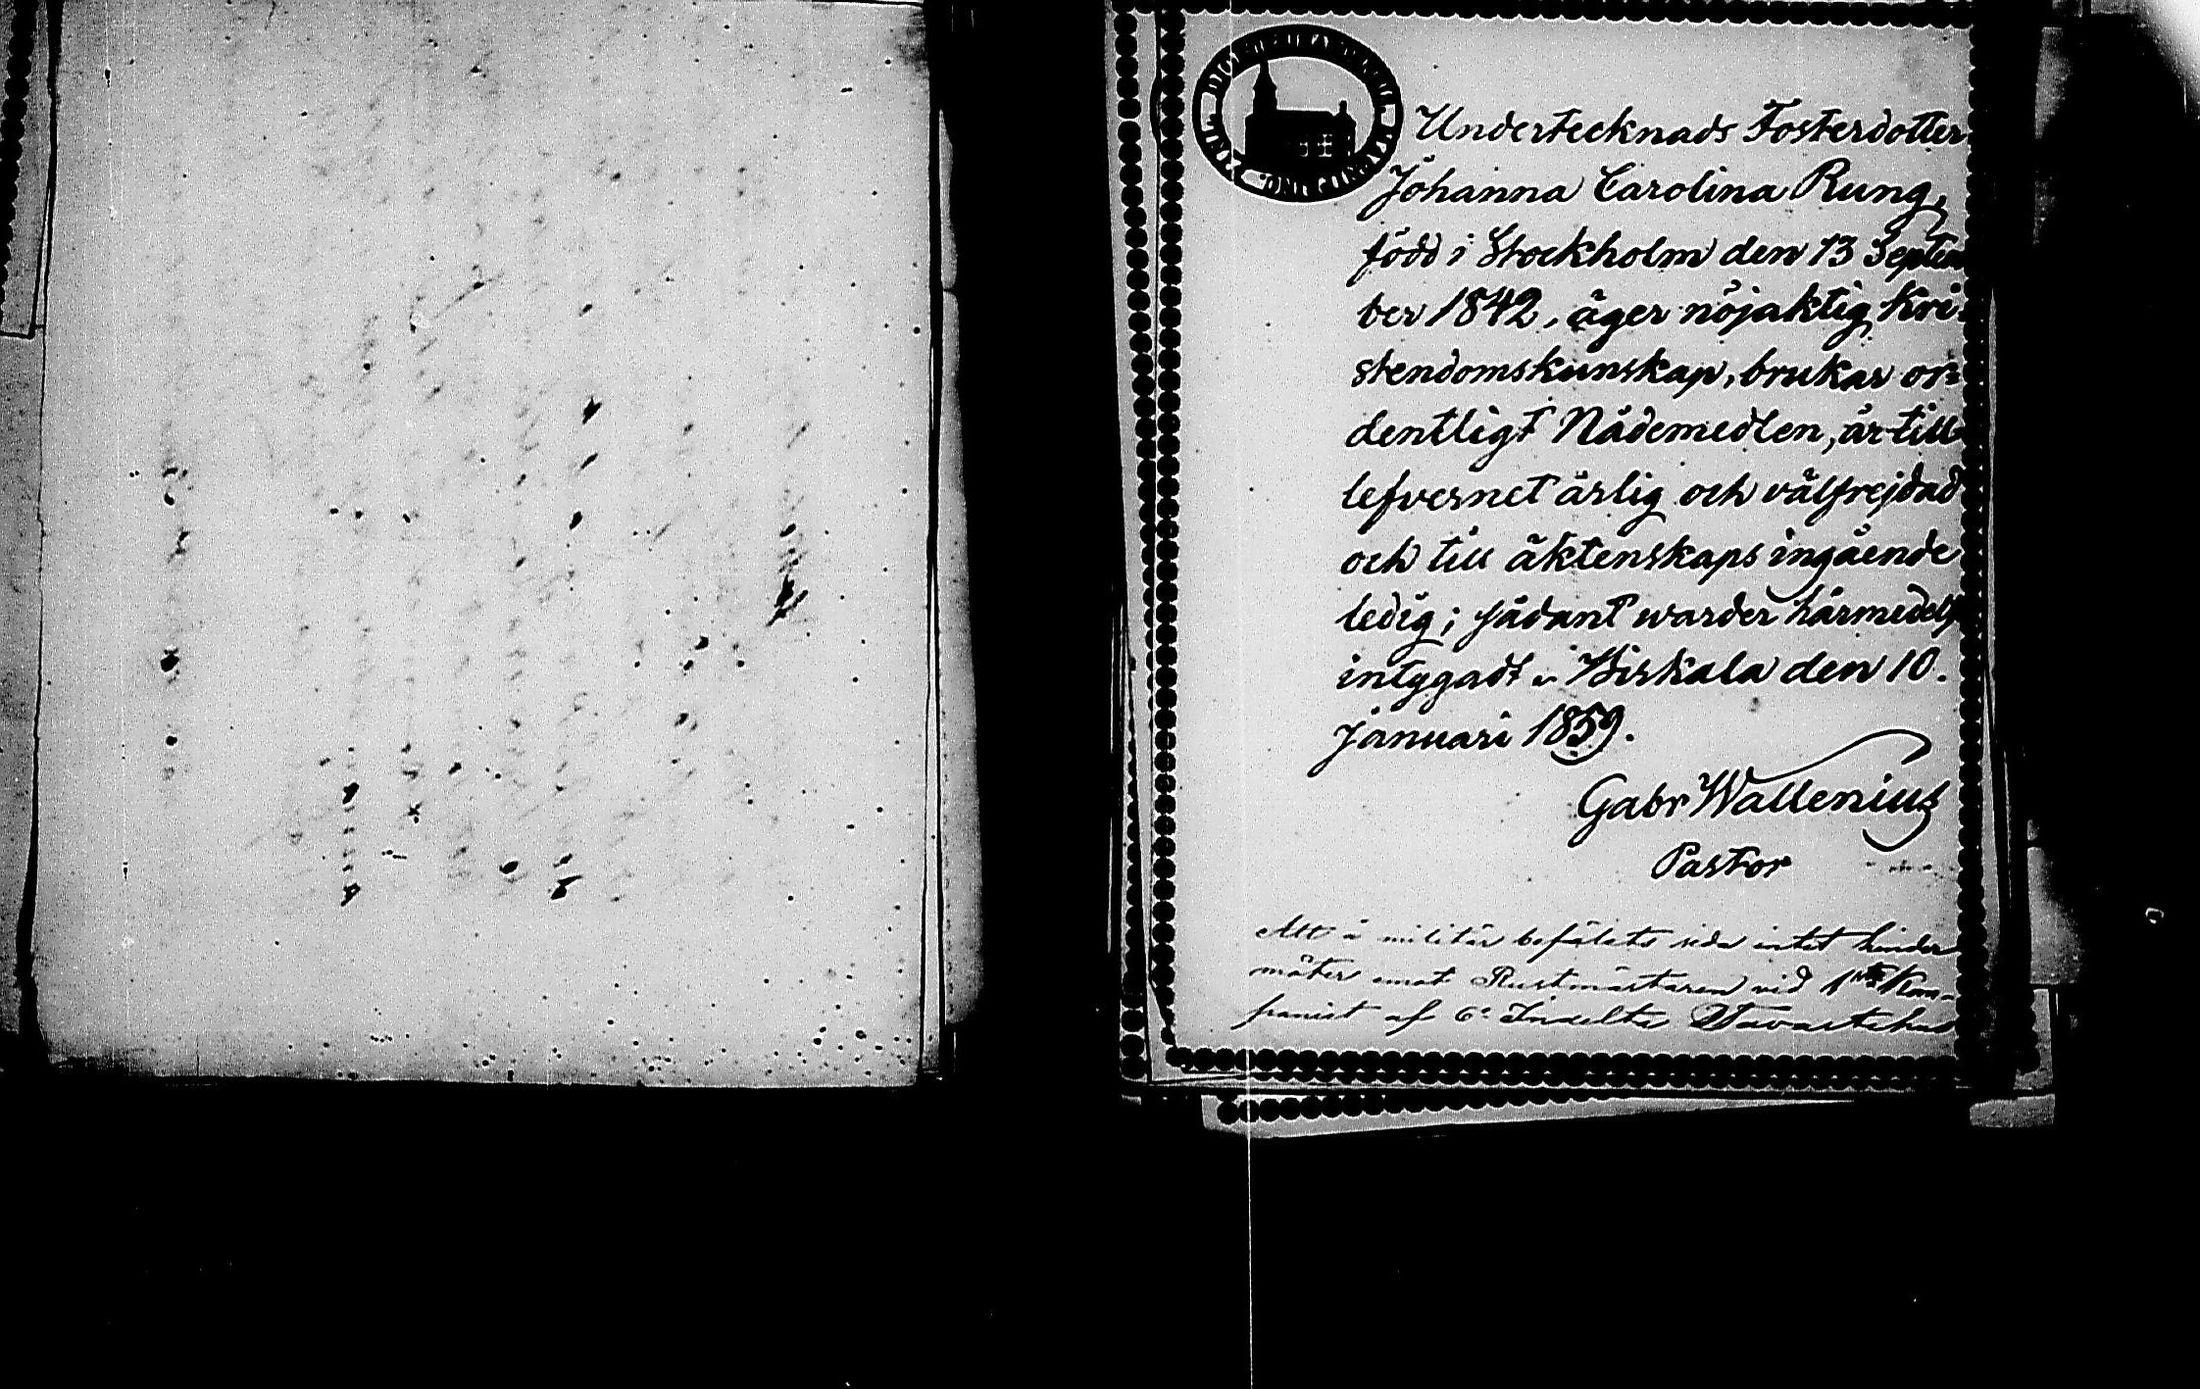 Undertecknads Fosterdotter
Johanna Carolina Rung,
född i Stockholm den 13 Septem
ber 1842, äger nöjaktig Kri-
stendomskunskap, brukar or-
dentligt Nådemedlen, är till
lefvernet ärlig och välfrejdad
och till äktenskaps ingående
ledig; sådant warder härmedelst
intygadt. Birkala den 10.
Januari 1859.
Gabr Wallenius
Pastor
Att å militär befälets sida intet hinder
möter emot Rustmästaren vid 1sta Kom-
paniet af 6e Indelta Tavastehus